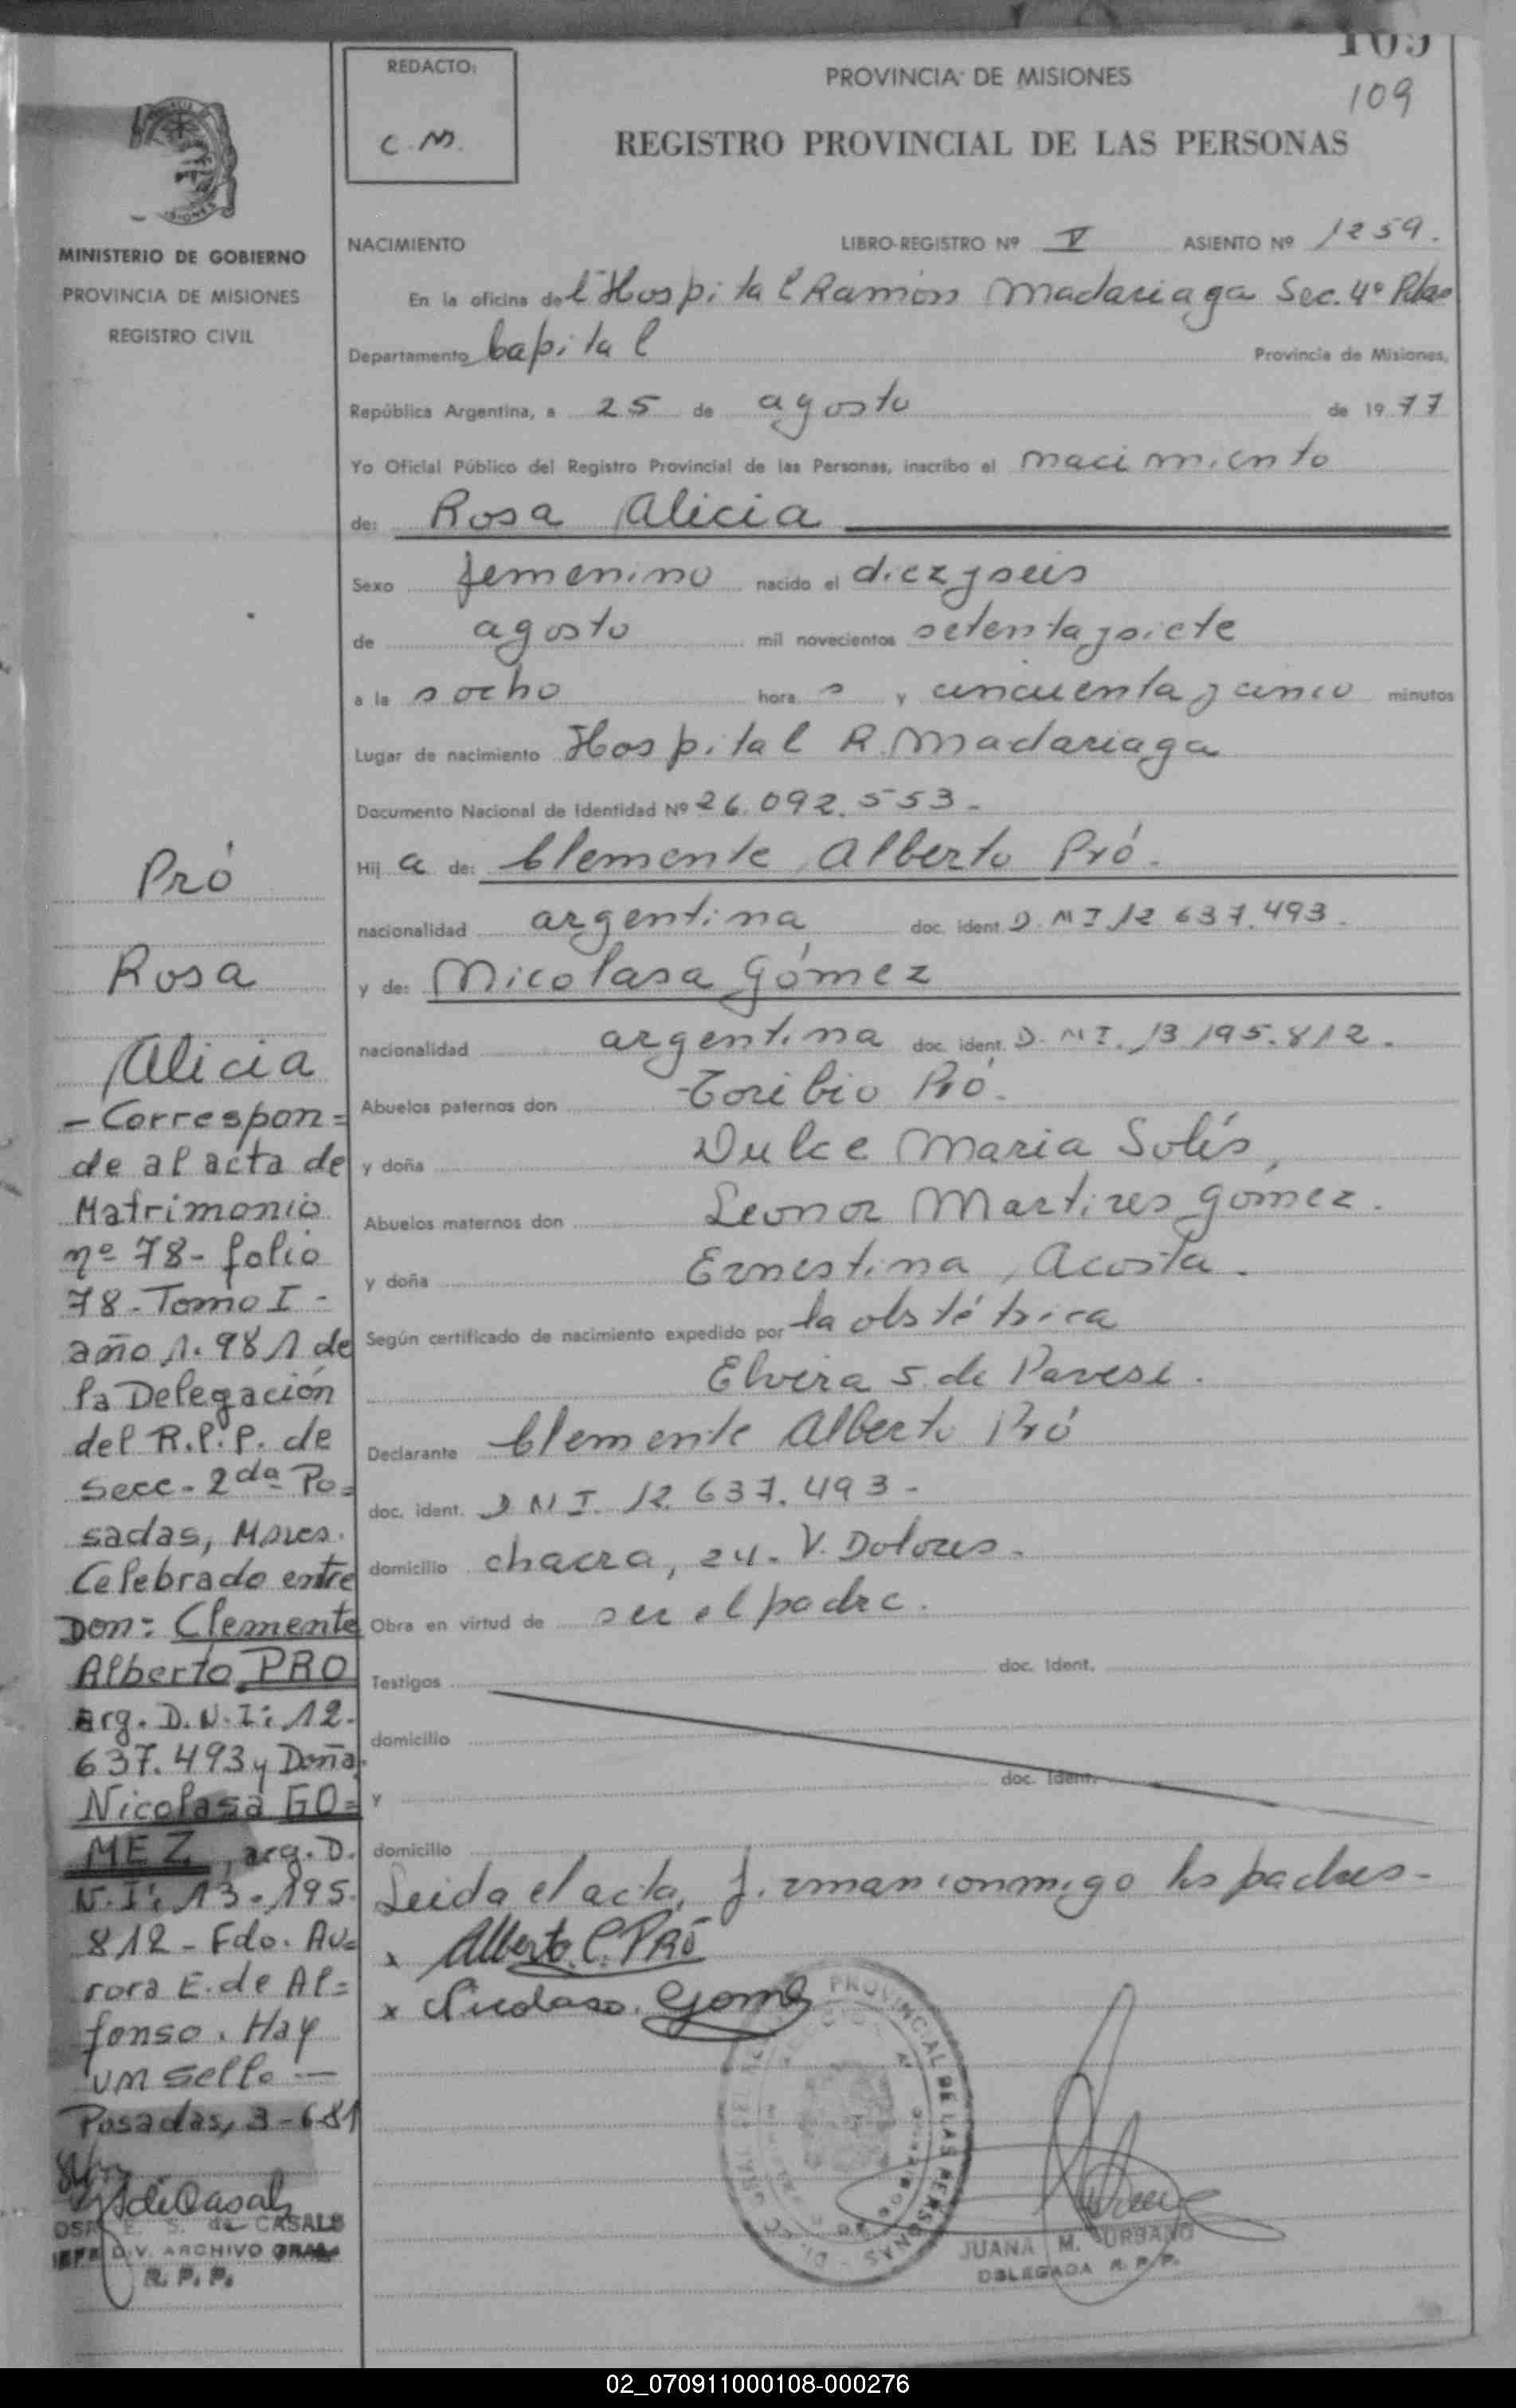 109
REDACTO:
C.M.
PROVINCIA DE MISIONES
109
REGISTRO PROVINCIAL DE LAS PERSONAS
MINISTERIO DE GOBIERNO
PROVINCIA DE MISIONES
REGISTRO CIVIL
NACIMIENTO LIBRO-REGISTRO Nº V ASIENTO Nº 1259.
En la oficina del Hospital Ramón Madariaga Sec. 4º Pdas
Departamento Capital Provincia de Misiones,
República Argentina, a 25 de agosto de 1977
Yo Oficial Público del Registro Provincial de las Personas, inscribo el nacimiento
de: Rosa Alicia
Sexo femenino nacido el diezyseis
de agosto mil novecientos setentaysiete
a la s ocho hora s y cincuenta y cinco minutos
Lugar de nacimiento Hospital R. Madariaga
Documento Nacional de Identidad Nº 26.092.553-
Hij a de: Clemente Alberto Pró.
nacionalidad argentina doc. ident. D.N.I 12.637.493.
y de: Nicolasa Gómez
nacionalidad argentina doc. ident. D.N.I. 13.195.812.
Abuelos paternos don Toribio Pró.
y doña Dulce Maria Solís,
Abuelos maternos don Leonor Martires Gómez.
y doña Ernestina Acosta.
Según certificado de nacimiento expedido por la obstétrica
Elvira S. de Pavese.
Declarante Clemente Alberto Pró
doc. ident. D.N.I. 12.637.493-
domicilio chacra, 24. V. Dolores.
Obra en virtud de ser el padre.
Testigos doc. Ident.
domicilio
y doc. Ident.
domicilio
Leida el acta, firman conmigo los padres-
x Alberto C. PRÓ
x Nicolasa. Gomez
Pró
Rosa
Alicia
- Correspon=
de al acta de
Matrimonio
nº 78- folio
78- Tomo I -
año 1.981 de
la Delegación
del R.P.P. de
Secc. 2da Po=
sadas, Mnes.
Celebrado entre
Don: Clemente
Alberto PRO
arg. D.N.I: 12.
637.493 y Doña
Nicolasa GO=
MEZ, arg. D.
N.I: 13.195.
812 - Fdo. Au=
rora E. de Al=
fonso. Hay
un sello —
Posadas, 3-6-81
E. S. de CASALS
JEFE DIV. ARCHIVO GRAL
R. P. P.
PROVINCIAL DE LAS PERSONAS
JUANA M. URBANO
DELEGADA R. P. P.
02_070911000108-000276